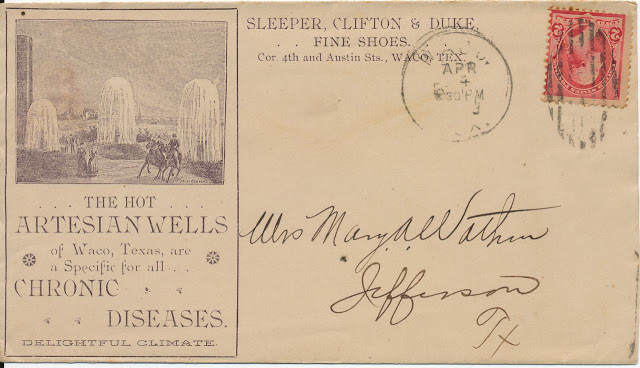 SLEEPER, CLIFTON & DUKE,
. . FINE SHOES. . .
Cor. 4th and Austin Sts., WACO, TEX.
APR
4
230 PM
. . THE HOT . . .
ARTESIAN WELLS
of Waco, Texas, are
a Specific for all . .
CHRONIC
DISEASES.
DELIGHTFUL CLIMATE.
Mrs Mary
Jefferson
Tx